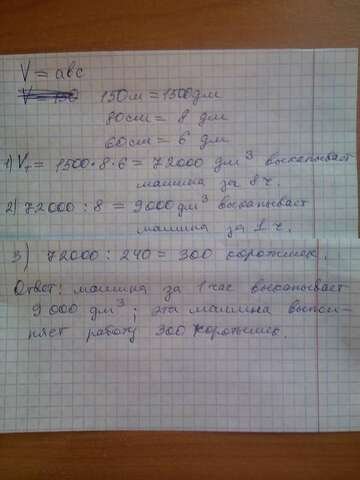 V = abc
V = 150 150м = 1500дм
80см = 8 дм
60см = 6 дм
1) V₁ = 1500·8·6 = 72000 дм³ выкапывает
машина за 8 ч.
2) 72000 : 8 = 9000 дм³ выкапывает
машина за 1 ч.
3) 72000 : 240 = 300 коротышек.
Ответ: машина за 1 час выкапывает
9 000 дм³; эта машина выпол-
няет работу 300 коротышек.